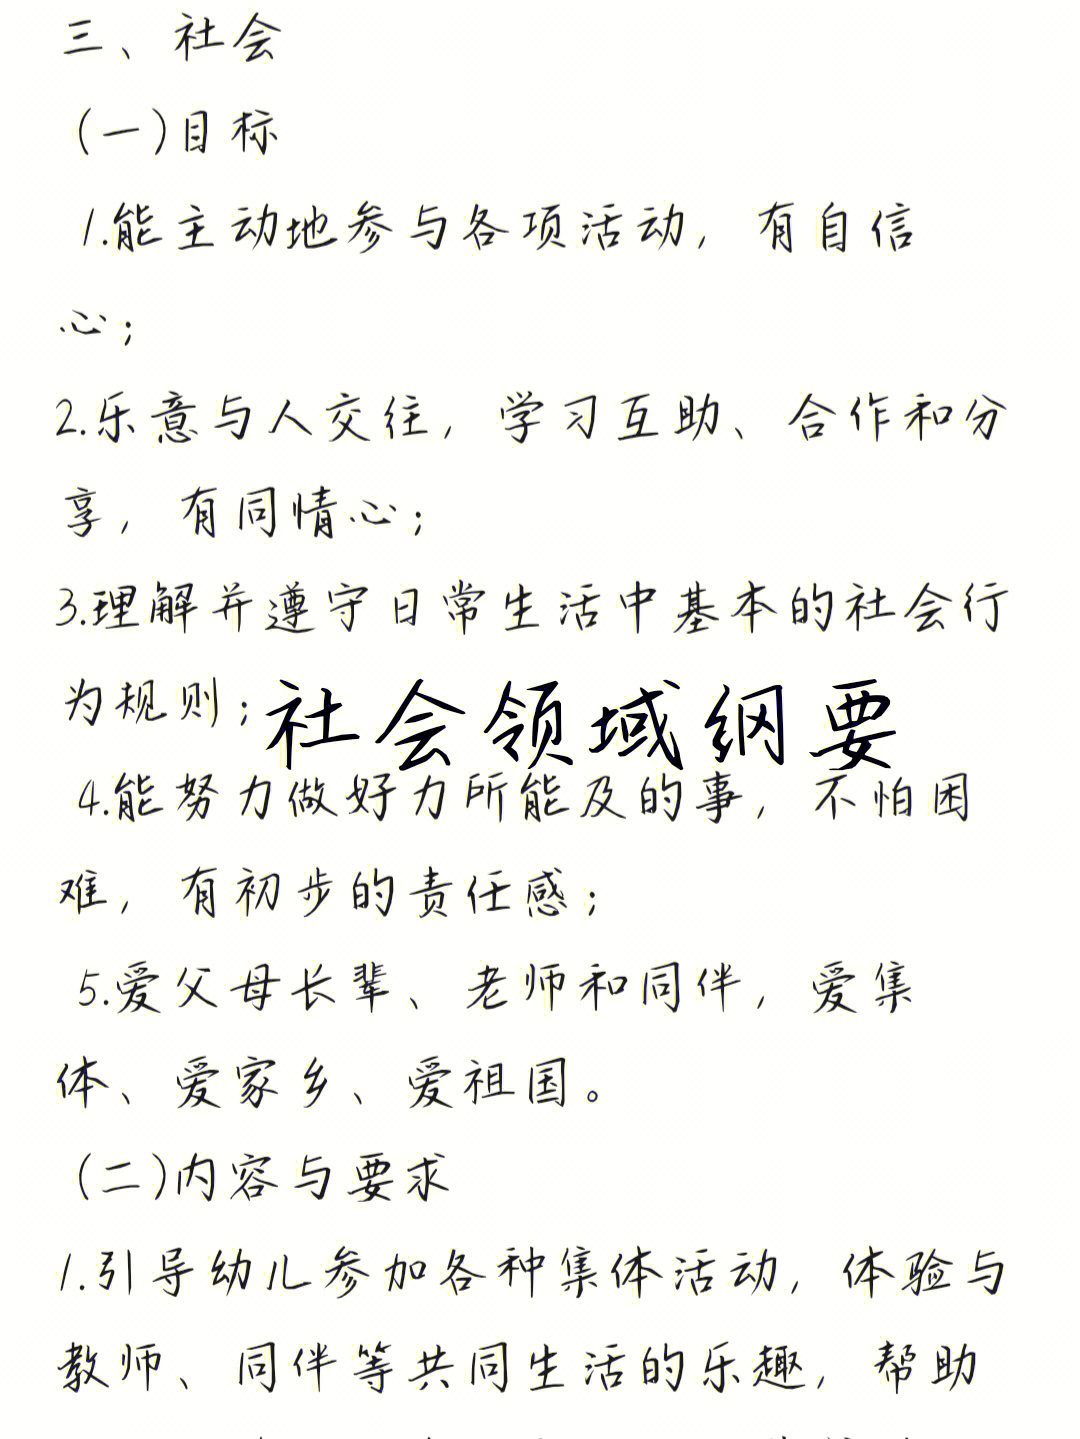 三、社会
(一)目标
1.能主动地参与各项活动，有自信
心；
2.乐意与人交往，学习互助、合作和分
享，有同情心；
3.理解并遵守日常生活中基本的社会行
为规则；
社会领域纲要
4.能努力做好力所能及的事，不怕困
难，有初步的责任感；
5.爱父母长辈、老师和同伴，爱集
体、爱家乡、爱祖国。
(二)内容与要求
1.引导幼儿参加各种集体活动，体验与
教师、同伴等共同生活的乐趣，帮助